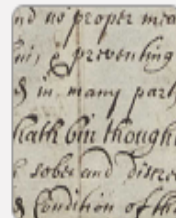 nd no proper mea
& preventing
& in many part
hath bin thought
sober and discre
& Condition of th